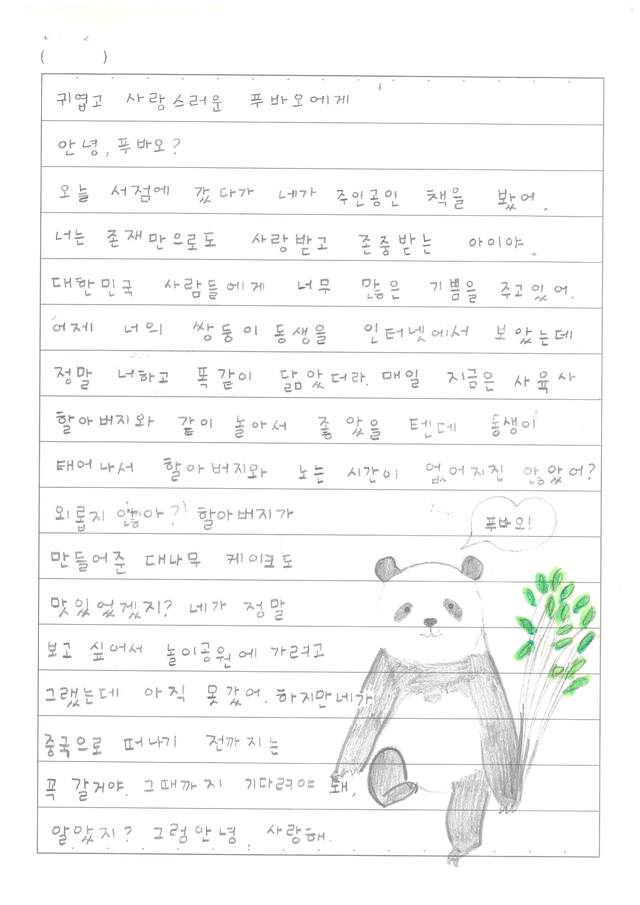 ( )
귀엽고 사랑스러운 푸바오에게
안녕, 푸바오?
오늘 서점에 갔다가 네가 주인공인 책을 봤어.
너는 존재만으로도 사랑받고 존중받는 아이야.
대한민국 사람들에게 너무 많은 기쁨을 주고있어.
어제 너의 쌍둥이동생을 인터넷에서 보았는데
정말 너하고 똑같이 닮았더라. 매일 지금은 사육사
할아버지와 같이 놀아서 좋았을 텐데 동생이
태어나서 할아버지와 노는 시간이 없어지진 않았어?
외롭지 않아? 할아버지가
만들어준 대나무 케이크도
맛있었겠지? 네가 정말
보고 싶어서 놀이공원에 가려고
그랬는데 아직 못갔어. 하지만네가
중국으로 떠나기 전까지는
꼭 갈거야. 그때까지 기다려야 돼,
알았지? 그럼안녕 사랑해.
푸바오!